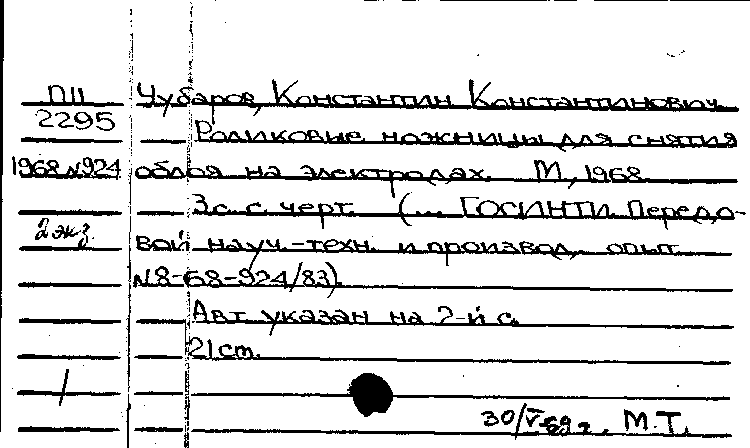 ПП Чубаров, Константин Константинович.
2295 Роликовые ножницы для снятия
1968 №924 облоя на электродах. М., 1968.
3с. с черт. (... ГОСИНТИ. Передо-
2 экз. вой науч.-техн. и производ. опыт
№8-68-924/83).
Авт. указан на 2-й с.
21 cm.
30/V-69 г. М.Т.